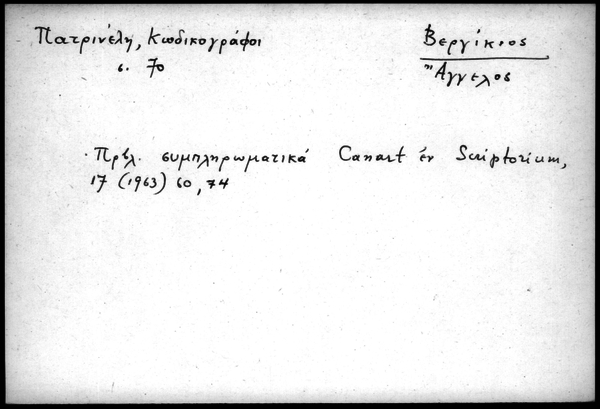 Πατρινέλη, Κωδικογράφοι
σ. 70
Βεργίκιος
Ἄγγελος
Πρβλ. συμπληρωματικά Canart ἐν Scriptorium,
17 (1963) 60, 74